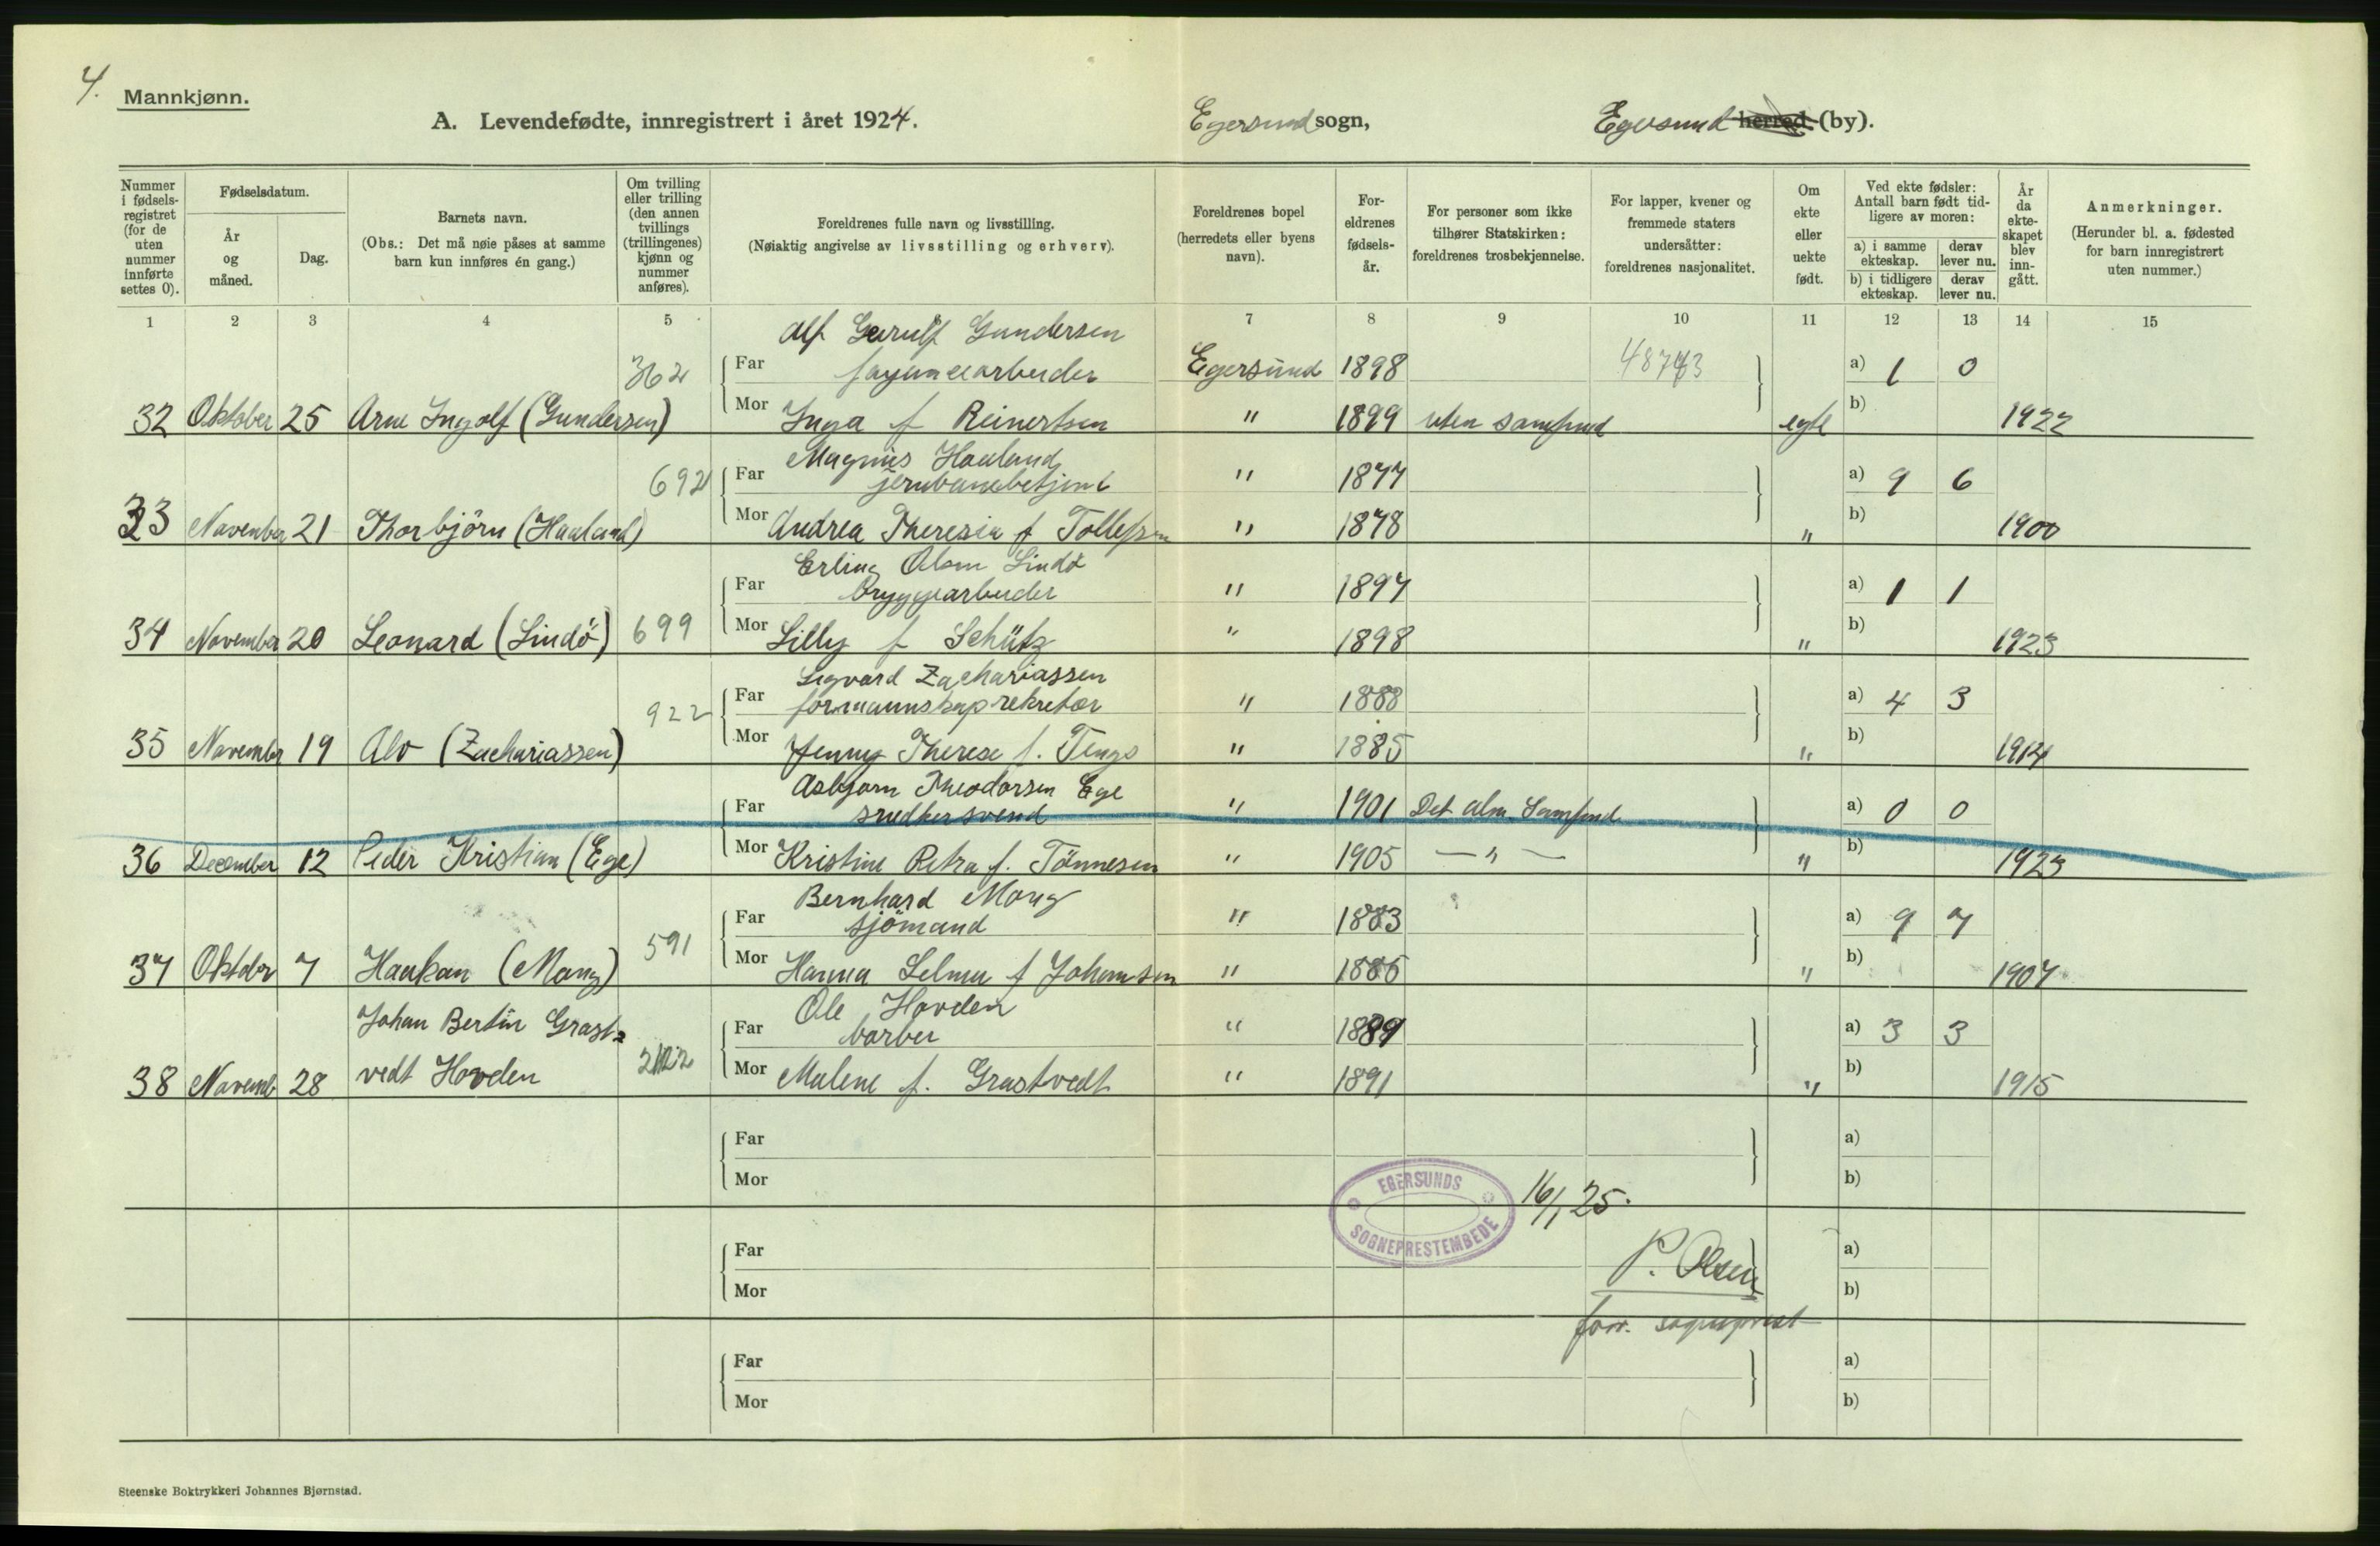 4.
Mannkjønn.
A. Levendefødte, innregistrert i året 1924.
Egersund sogn,
Egersund herred (by).
Nummer i fødsels-registret (for de uten nummer innførte settes 0).
Fødselsdatum.
År og måned.
Dag.
Barnets navn.
(Obs.: Det må nøie påses at samme barn kun innføres én gang.)
Om tvilling eller trilling (den annen tvillings (trillingenes) kjønn og nummer anføres).
Foreldrenes fulle navn og livsstilling.
(Nøiaktig angivelse av livsstilling og erhverv).
Foreldrenes bopel (herredets eller byens navn).
For-eldrenes fødsels-år.
For personer som ikke tilhører Statskirken: foreldrenes trosbekjennelse.
For lapper, kvener og fremmede staters undersåtter: foreldrenes nasjonalitet.
Om ekte eller uekte født.
Ved ekte fødsler: Antall barn født tid-ligere av moren:
a) i samme ekteskap.
derav lever nu.
b) i tidligere ekteskap.
derav lever nu.
År da ekte-skapet blev inn-gått.
Anmerkninger.
(Herunder bl. a. fødested for barn innregistrert uten nummer.)
1 2 3 4 5 6 7 8 9 10 11 12 13 14 15
Alf Gundersen
362 Far fayancearbeider Egersund 1898 a) 1 0
32 Oktober 25 Arne Ingolf (Gundersen) Mor Inga f Reinertsen " 1899 uten samfund egte b) 1922
Magnus Haaland
692 Far jernbanebetjent " 1877 a) 9 6
33 November 21 Thorbjörn (Haaland) Mor Andrea Theresia f Tollefsen " 1878 " b) 1900
Erling Olsen Lindö
Far bryggearbeider " 1897 a) 1 1
34 November 20 Leonard (Lindö) 699 Mor Lilly f Schütz " 1898 " b) 1923
Sigvard Zachariassen
922 Far formannskapsekretær " 1888 a) 4 3
35 November 19 Alv (Zachariassen) Mor Jenny Therese f. Tengs " 1885 " b) 1914
Asbjørn Theodorsen Ege
Far snedkersvend " 1901 Det alm. Samfund a) 0 0
36 December 12 Peder Kristian (Ege) Mor Kristine Petra f. Tönnesen " 1905 — " — " b) 1923
Bernhard Mong
591 Far sjömand " 1883 a) 9 7
37 Oktober 7 Haakan (Mong) Mor Hanna Selma f Johannsen " 1886 " b) 1907
Ole Hovden
Johan Bertin Grast= Far barber " 1889 a) 3 3
38 Novemb 28 vedt Hovden Mor Malene f. Grastvedt " 1891 " b) 1915
Far a)
Mor b)
EGERSUNDS SOGNEPRESTEMBEDE
16/1 25.
Far a)
P. Olsen
Mor b)
sogneprest
Far a)
Mor b)
Steenske Boktrykkeri Johannes Bjørnstad.